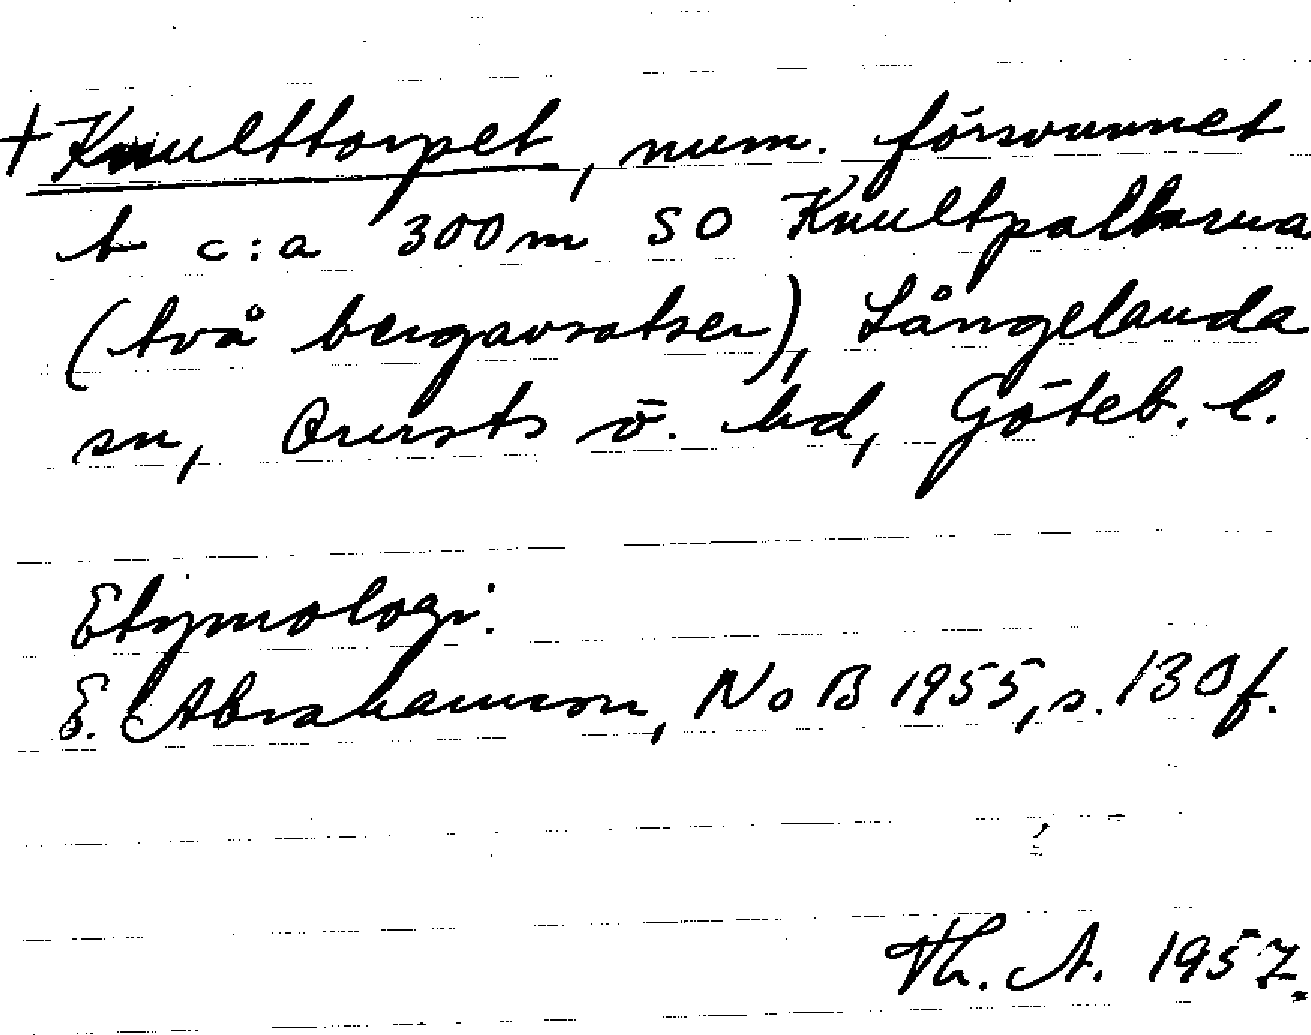 + Knulttorpet, num. försvunnet
t c:a 300m SO Knultpallarna
(två bergavsatser), Långelanda
sn, Orusts ö. hd, Göteb. l.
Etymologi:
E. Abrahamson, NoB 1955, s. 130f.
Th. A. 1957.